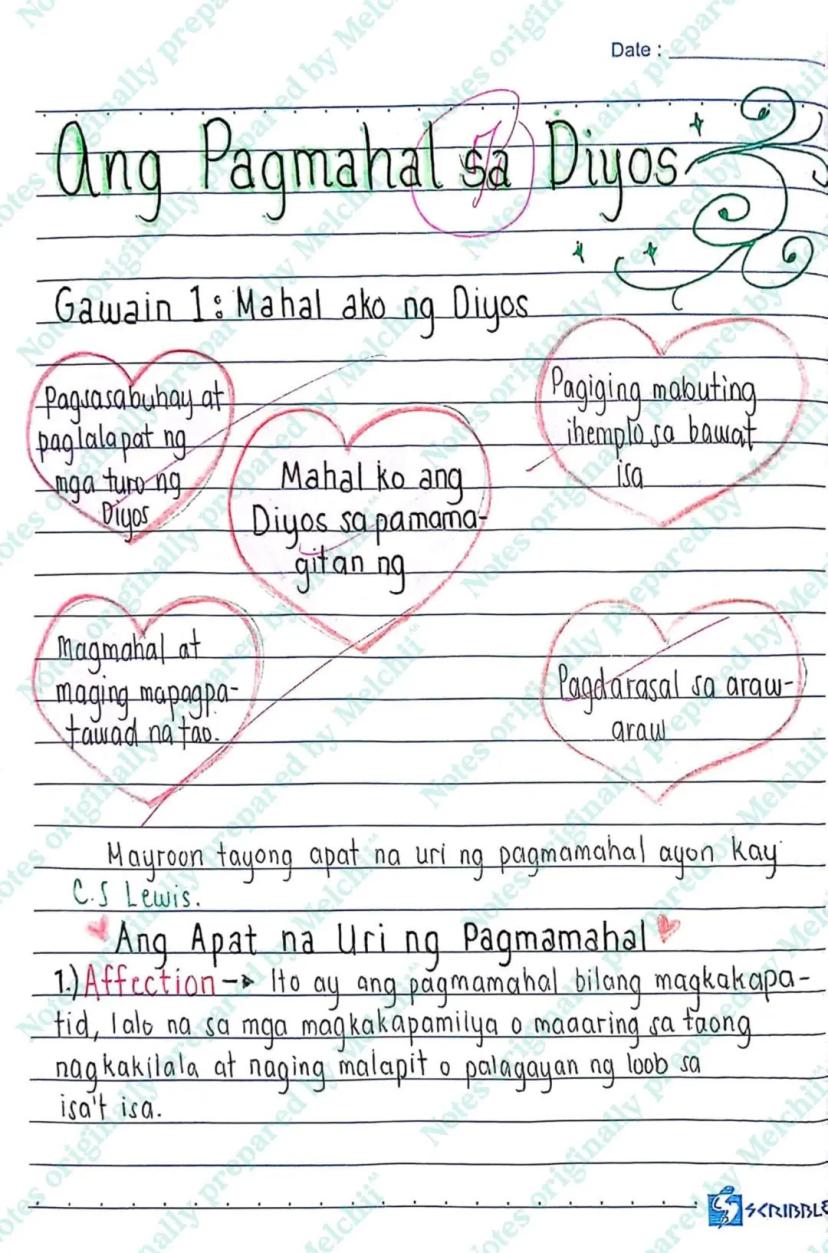 Date :
Ang Pagmahal sa Diyos
Gawain 1: Mahal ako ng Diyos
Pagsasabuhay at
paglalapat ng
mga turo ng
Diyos
Mahal ko ang
Diyos sa pamama-
gitan ng
Pagiging mabuting
ihemplo sa bawat
isa
Magmahal at
maging mapagpa-
tawad na tao.
Pagdarasal sa araw-
araw
Mayroon tayong apat na uri ng pagmamahal ayon kay
C.S Lewis.
Ang Apat na Uri ng Pagmamahal
1.) Affection → Ito ay ang pagmamahal bilang magkakapa-
tid, lalo na sa mga magkakapamilya o maaaring sa taong
nagkakilala at naging malapit o palagayan ng loob sa
isa't isa.
SCRIBBLE
Notes originally prepared by Melchii